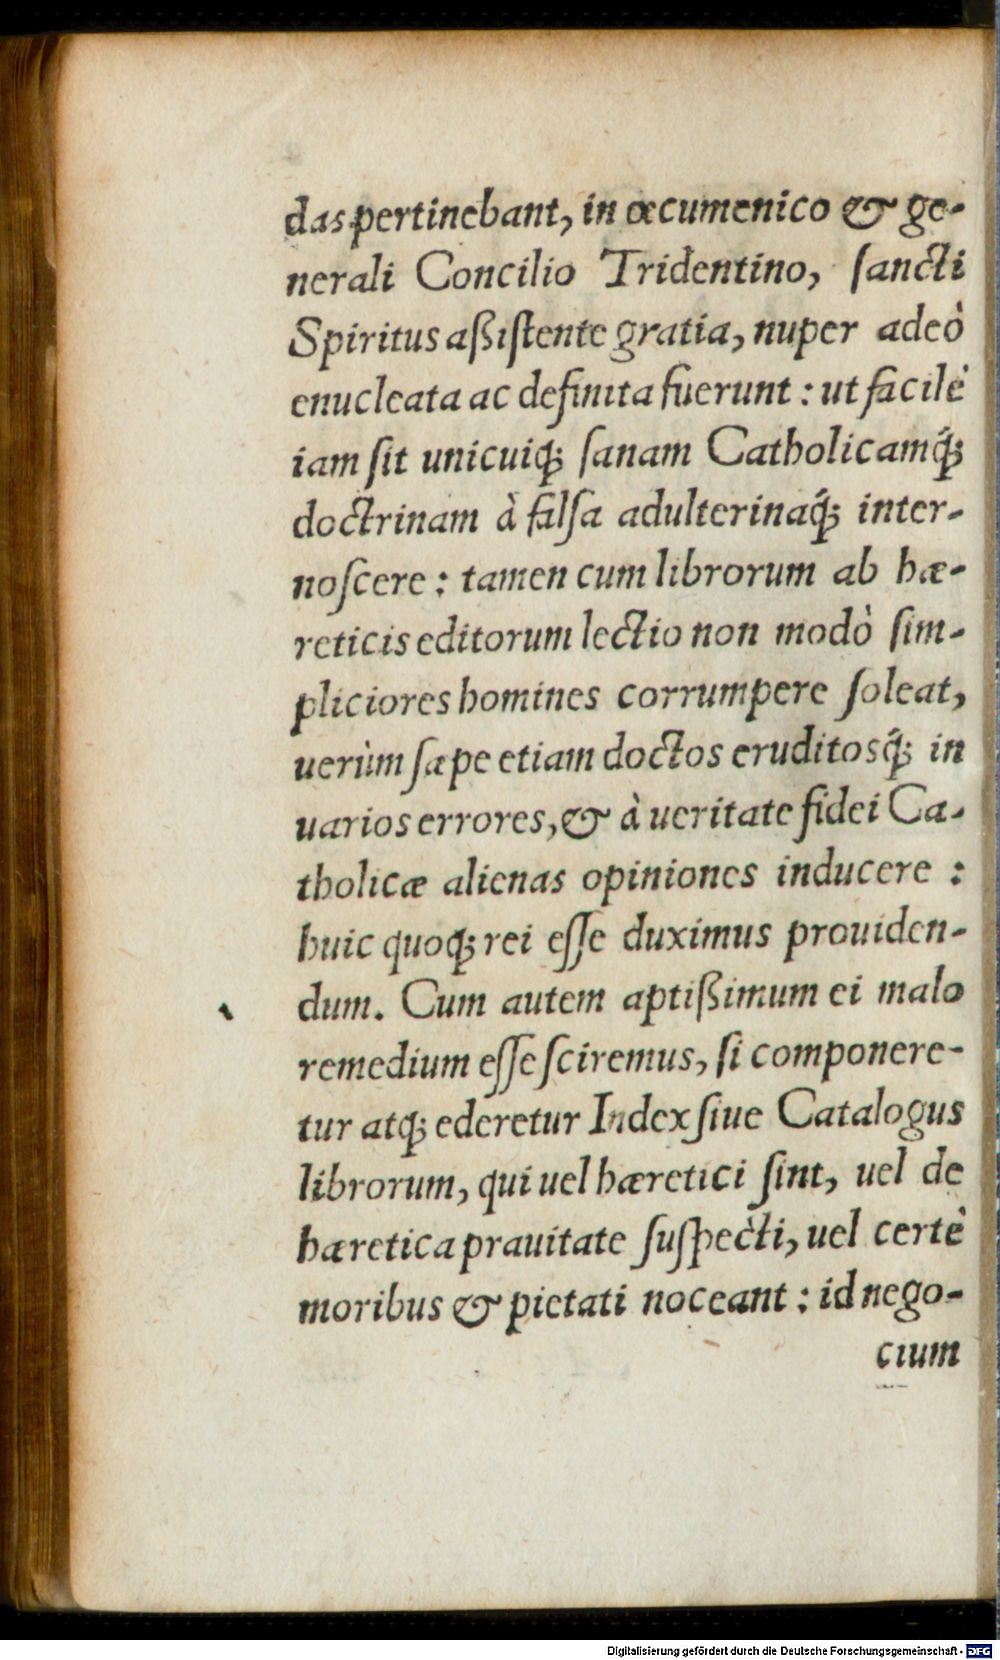 das pertinebant, in œcumenico & ge-
nerali Concilio Tridentino, sancti
Spiritus aßistente gratia, nuper adeò
enucleata ac definita fuerunt : ut facilè
iam sit unicuiq; sanam Catholicamq́;
doctrinam à falsa adulterinaq́; inter-
noscere : tamen cum librorum ab hæ-
reticis editorum lectio non modò sim-
pliciores homines corrumpere soleat,
uerùm sæpe etiam doctos eruditosq́; in
uarios errores, & à ueritate fidei Ca-
tholicæ alienas opiniones inducere :
huic quoq; rei esse duximus prouiden-
dum. Cum autem aptißimum ei malo
remedium esse sciremus, si componere-
tur atq; ederetur Index siue Catalogus
librorum, qui uel hæretici sint, uel de
hæretica prauitate suspecti, uel certè
moribus & pietati noceant : id nego-
cium
Digitalisierung gefördert durch die Deutsche Forschungsgemeinschaft - DFG